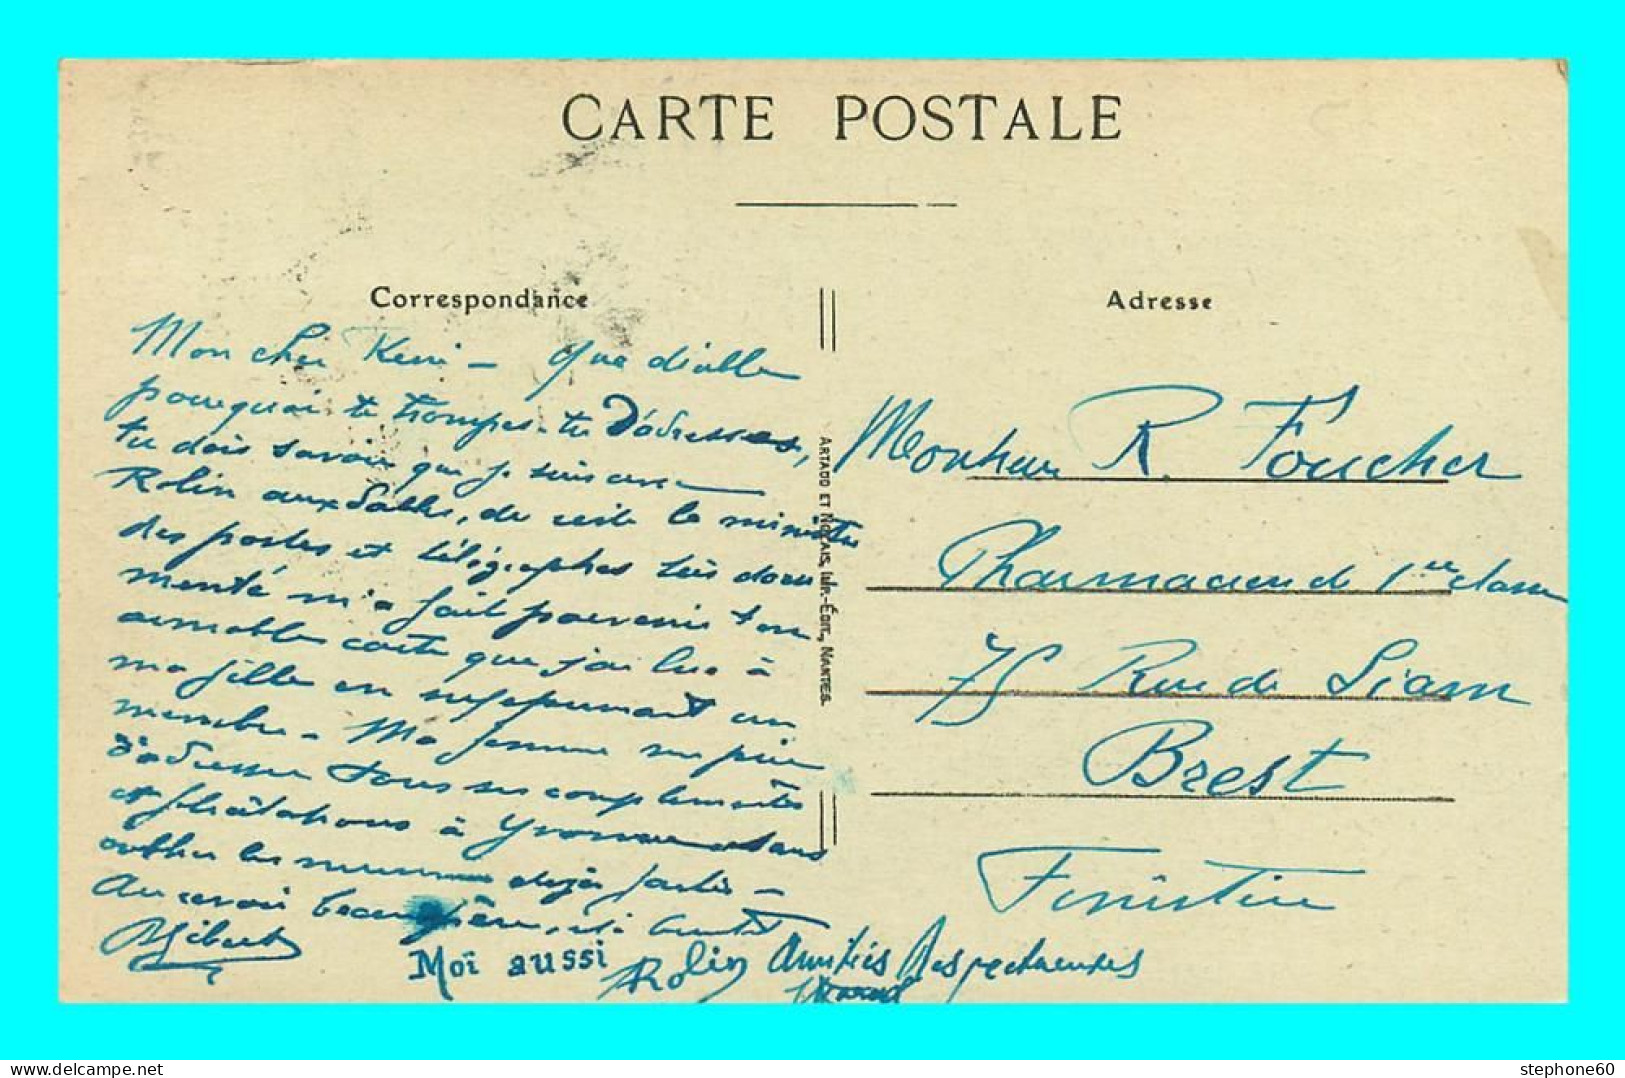 CARTE POSTALE
Correspondance
Adresse
Mon cher René – que diable
pourquoi te trompes-tu d'adresses,
tu dois savoir que je suis avec
Rolin aux Sables, de reste le ministre
des postes et télégraphes très
m'a fait parvenir ton
aimable carte que j'ai lue à
ma fille en un
membre – Ma femme me prie
d'adresser tous ses compliments
et félicitations à Yvonne sans
oublier les déjà
Au revoir beau père, et à bientôt
Gibert
Moi aussi
Rolin
Amitiés Respectueuses
ARTAUD ET NOZAIS, IMP.-ÉDIT., NANTES.
Monsieur R. Foucher
Pharmacien de 1re classe
75 Rue de Siam
Brest
Finistère
stephone60